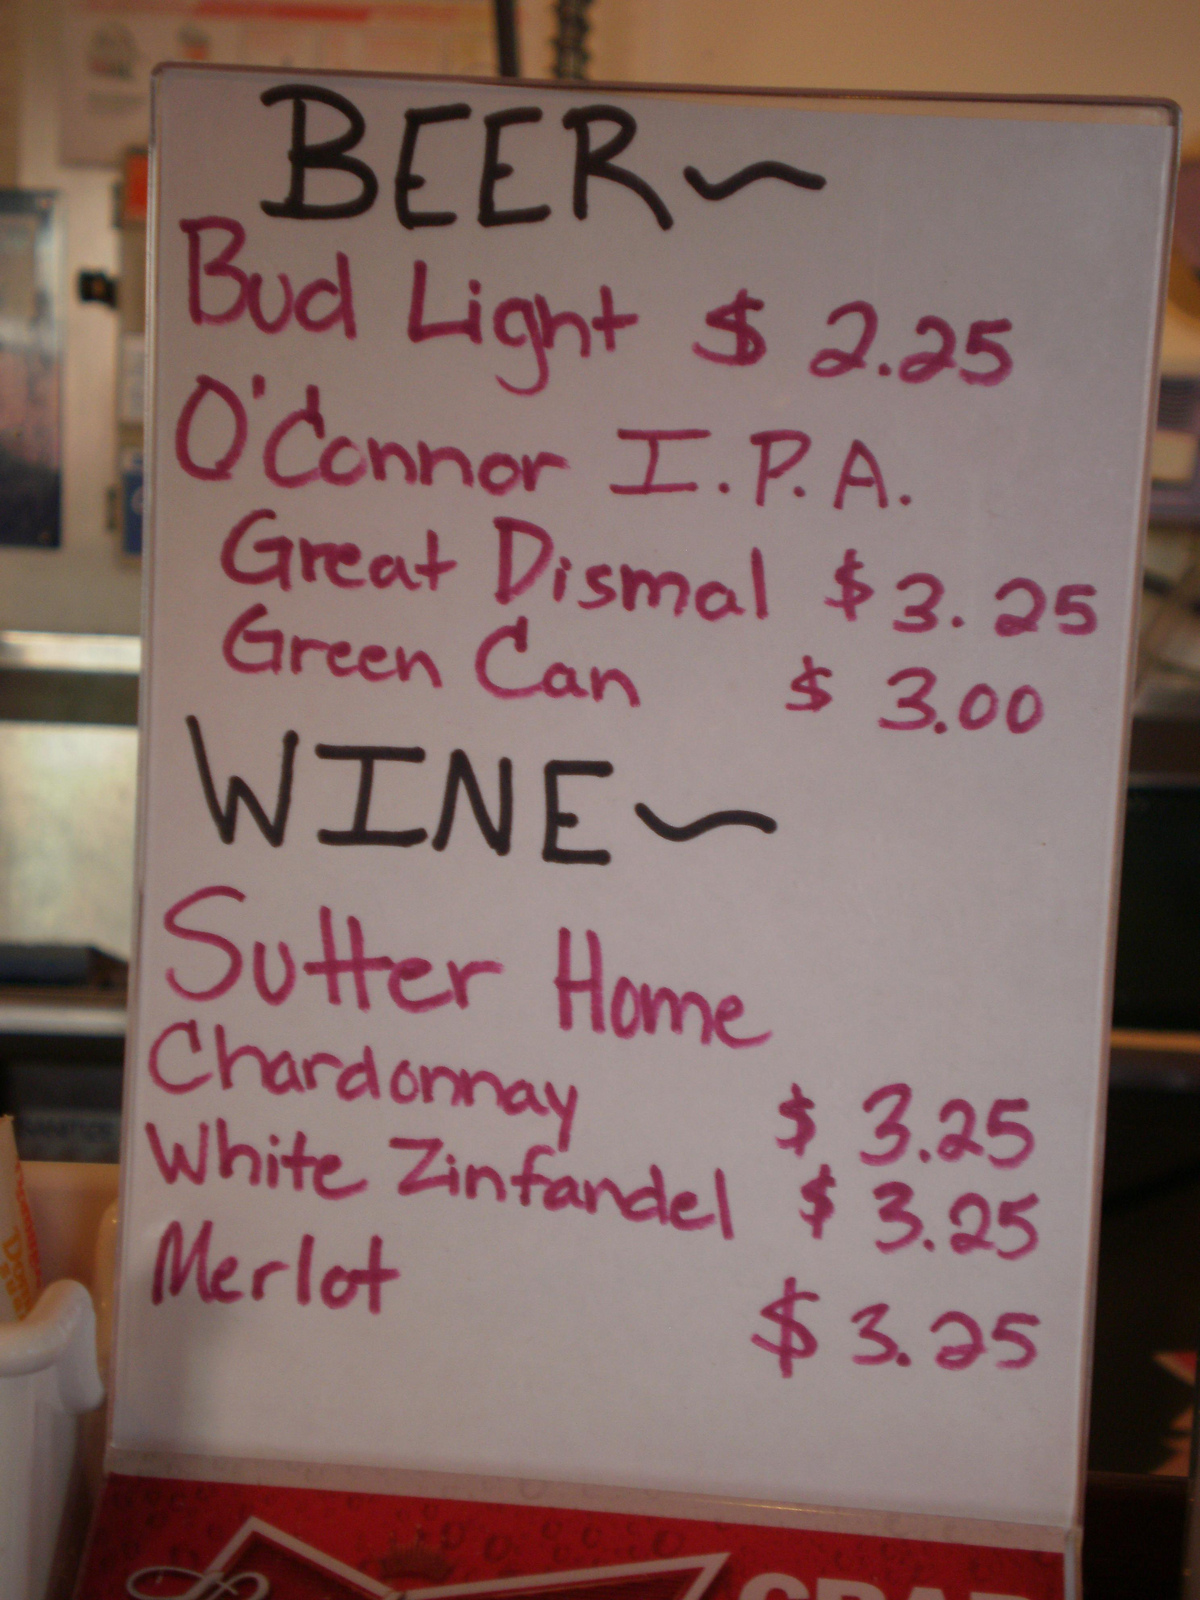 BEER~
Bud Light $ 2.25
O'Connor I.P.A.
Great Dismal $3.25
Green Can $ 3.00
WINE~
Sutter Home
Chardonnay $ 3.25
White Zinfandel $ 3.25
Merlot $ 3.25